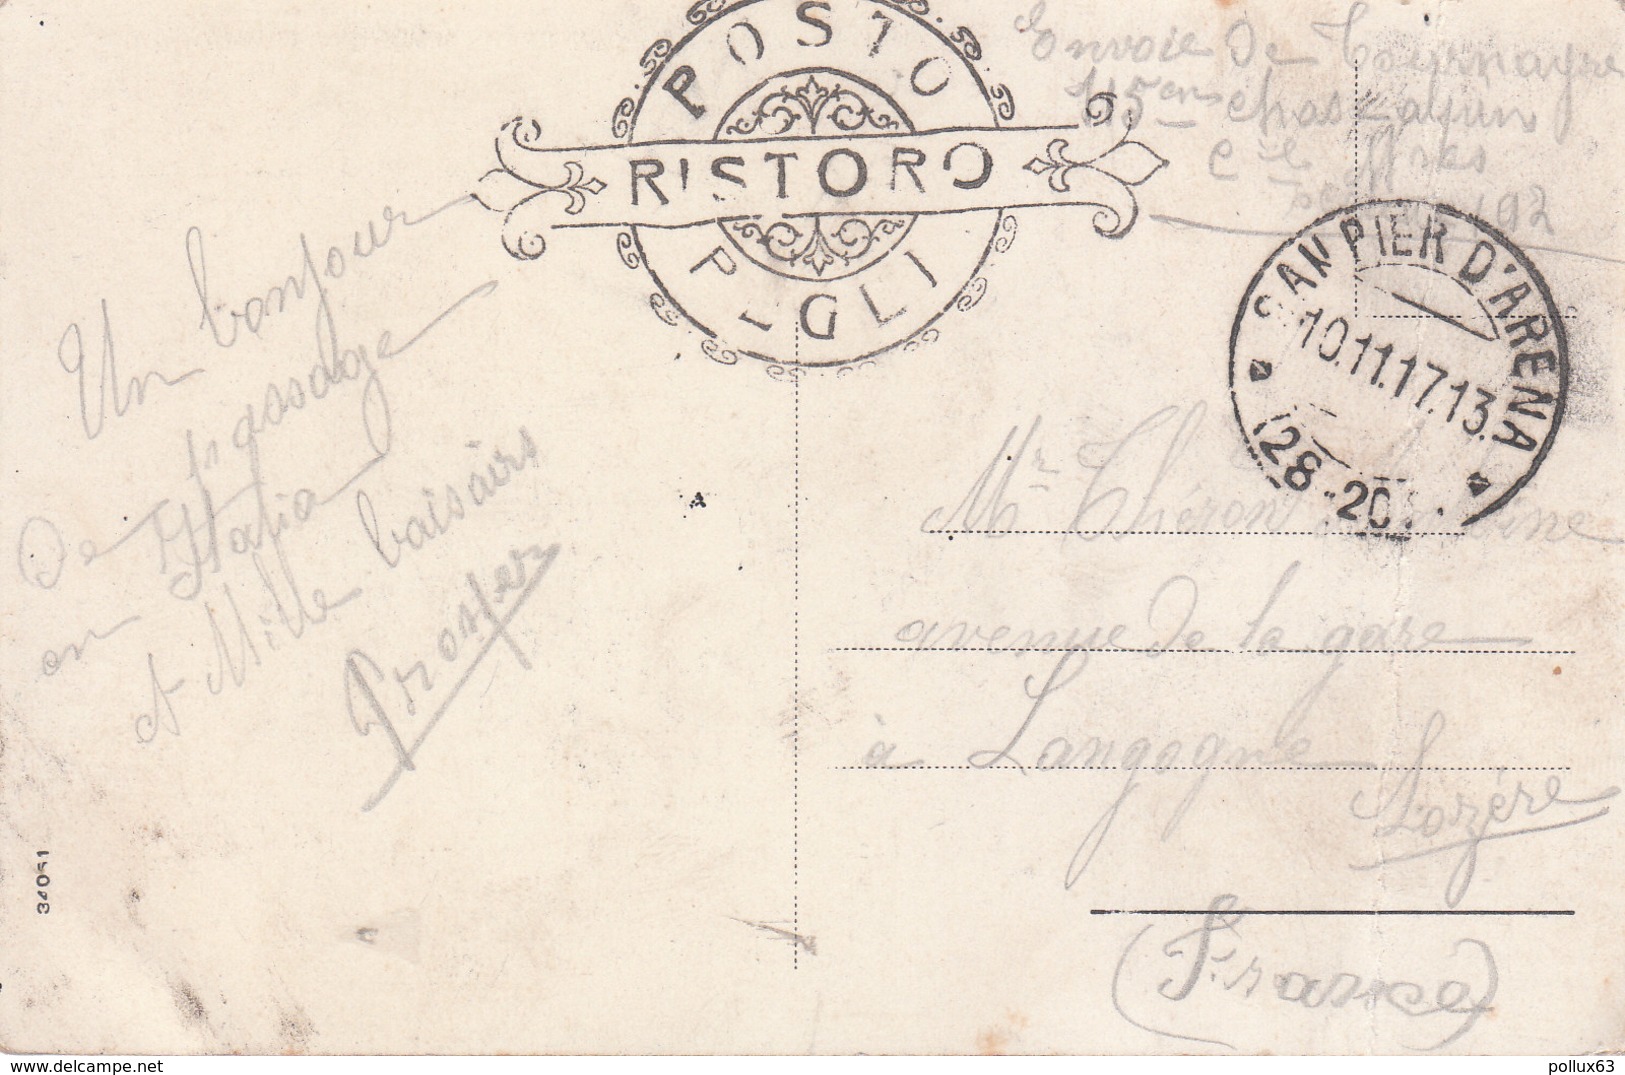 POSTO
RISTORO
PEGLI
Envoie de Tournayre
115em
192
SAN PIER D'ARENA
10.11.17.13.
(28-20
Un bonjour
de passage
en Italia
et Mille baisairs
Prosper
Mr Théron
avenue de la gare
à Langogne
Lozère
(France)
34061
Delcampe.net
pollux63